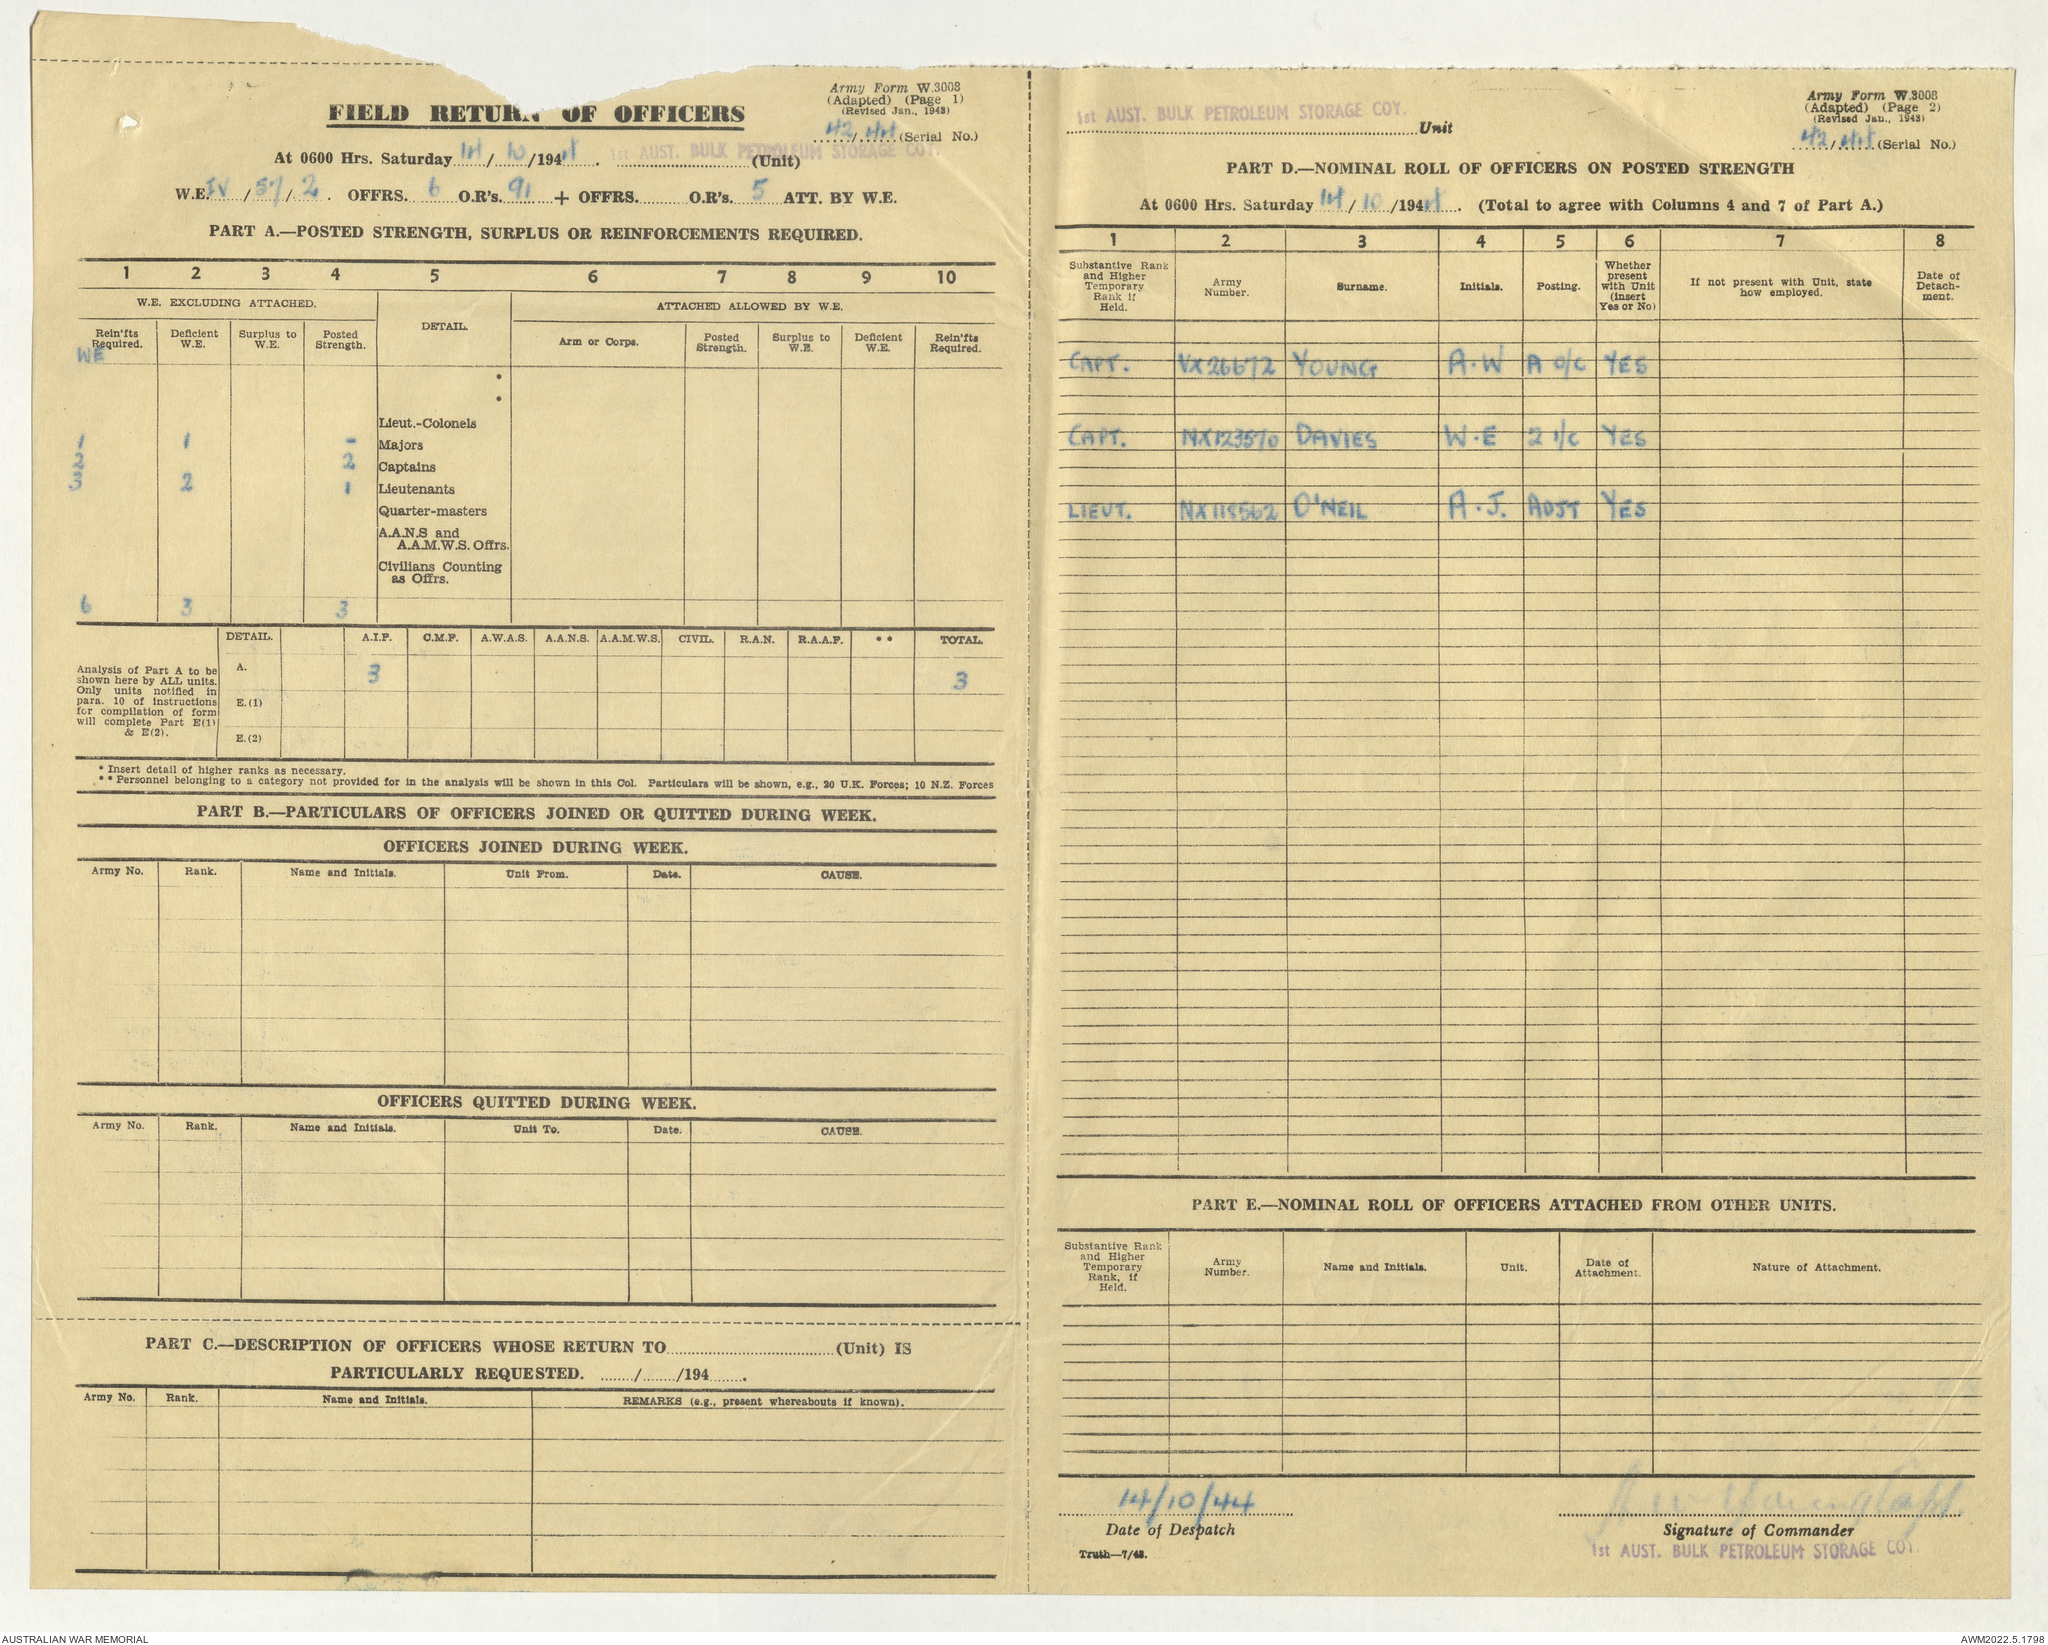 Army Form W.3008
(Adapted) (Page 1)
(Revised Jan., 1943)
42/44 (Serial No.)
FIELD RETURN OF OFFICERS
At 0600 Hrs. Saturday 14/10/1944. 1st AUST. BULK PETROLEUM STORAGE COY. (Unit)
W.E. IV/57/2. OFFRS. 6 O.R's. 91 + OFFRS. O.R's. 5 ATT. BY W.E.
PART A.—POSTED STRENGTH, SURPLUS OR REINFORCEMENTS REQUIRED.
1 2 3 4 5 6 7 8 9 10
W.E. EXCLUDING ATTACHED. DETAIL. ATTACHED ALLOWED BY W.E.
Rein'fts Required. Deficient W.E. Surplus to W.E. Posted Strength. Arm or Corps. Posted Strength. Surplus to W.E. Deficient W.E. Rein'fts Required.
WE
*
*
Lieut.-Colonels
1 1 - Majors
2 2 Captains
3 2 1 Lieutenants
Quarter-masters
A.A.N.S and
A.A.M.W.S. Offrs.
Civilians Counting
as Offrs.
6 3 3
DETAIL. A.I.F. C.M.F. A.W.A.S. A.A.N.S. A.A.M.W.S. CIVIL. R.A.N. R.A.A.F. ** TOTAL.
Analysis of Part A to be
shown here by ALL units.
Only units notified in
para. 10 of instructions
for compilation of form
will complete Part E(1)
& E(2).
A. 3 3
E.(1)
E.(2)
* Insert detail of higher ranks as necessary.
** Personnel belonging to a category not provided for in the analysis will be shown in this Col. Particulars will be shown, e.g., 20 U.K. Forces; 10 N.Z. Forces
PART B.—PARTICULARS OF OFFICERS JOINED OR QUITTED DURING WEEK.
OFFICERS JOINED DURING WEEK.
Army No. Rank. Name and Initials. Unit From. Date. CAUSE.
OFFICERS QUITTED DURING WEEK.
Army No. Rank. Name and Initials. Unit To. Date. CAUSE.
PART C.—DESCRIPTION OF OFFICERS WHOSE RETURN TO (Unit) IS
PARTICULARLY REQUESTED. / /194 .
Army No. Rank. Name and Initials. REMARKS (e.g., present whereabouts if known).
Army Form W.3008
(Adapted) (Page 2)
(Revised Jan., 1943)
42/44 (Serial No.)
1st AUST. BULK PETROLEUM STORAGE COY. Unit
PART D.—NOMINAL ROLL OF OFFICERS ON POSTED STRENGTH
At 0600 Hrs. Saturday 14/10/1944. (Total to agree with Columns 4 and 7 of Part A.)
1 2 3 4 5 6 7 8
Substantive Rank and Higher Temporary Rank if Held. Army Number. Surname. Initials. Posting. Whether present with Unit (insert Yes or No) If not present with Unit, state how employed. Date of Detach-ment.
CAPT. VX26672 YOUNG A.W A O/C YES
CAPT. NX123570 DAVIES W.E 2 I/C YES
LIEUT. NX118562 O'NEIL A.J. ADJT YES
PART E.—NOMINAL ROLL OF OFFICERS ATTACHED FROM OTHER UNITS.
Substantive Rank and Higher Temporary Rank, if Held. Army Number. Name and Initials. Unit. Date of Attachment. Nature of Attachment.
14/10/44
Date of Despatch
A W Young Capt.
Signature of Commander
1st AUST. BULK PETROLEUM STORAGE COY.
Truth—7/43.
AUSTRALIAN WAR MEMORIAL
AWM2022.5.1798